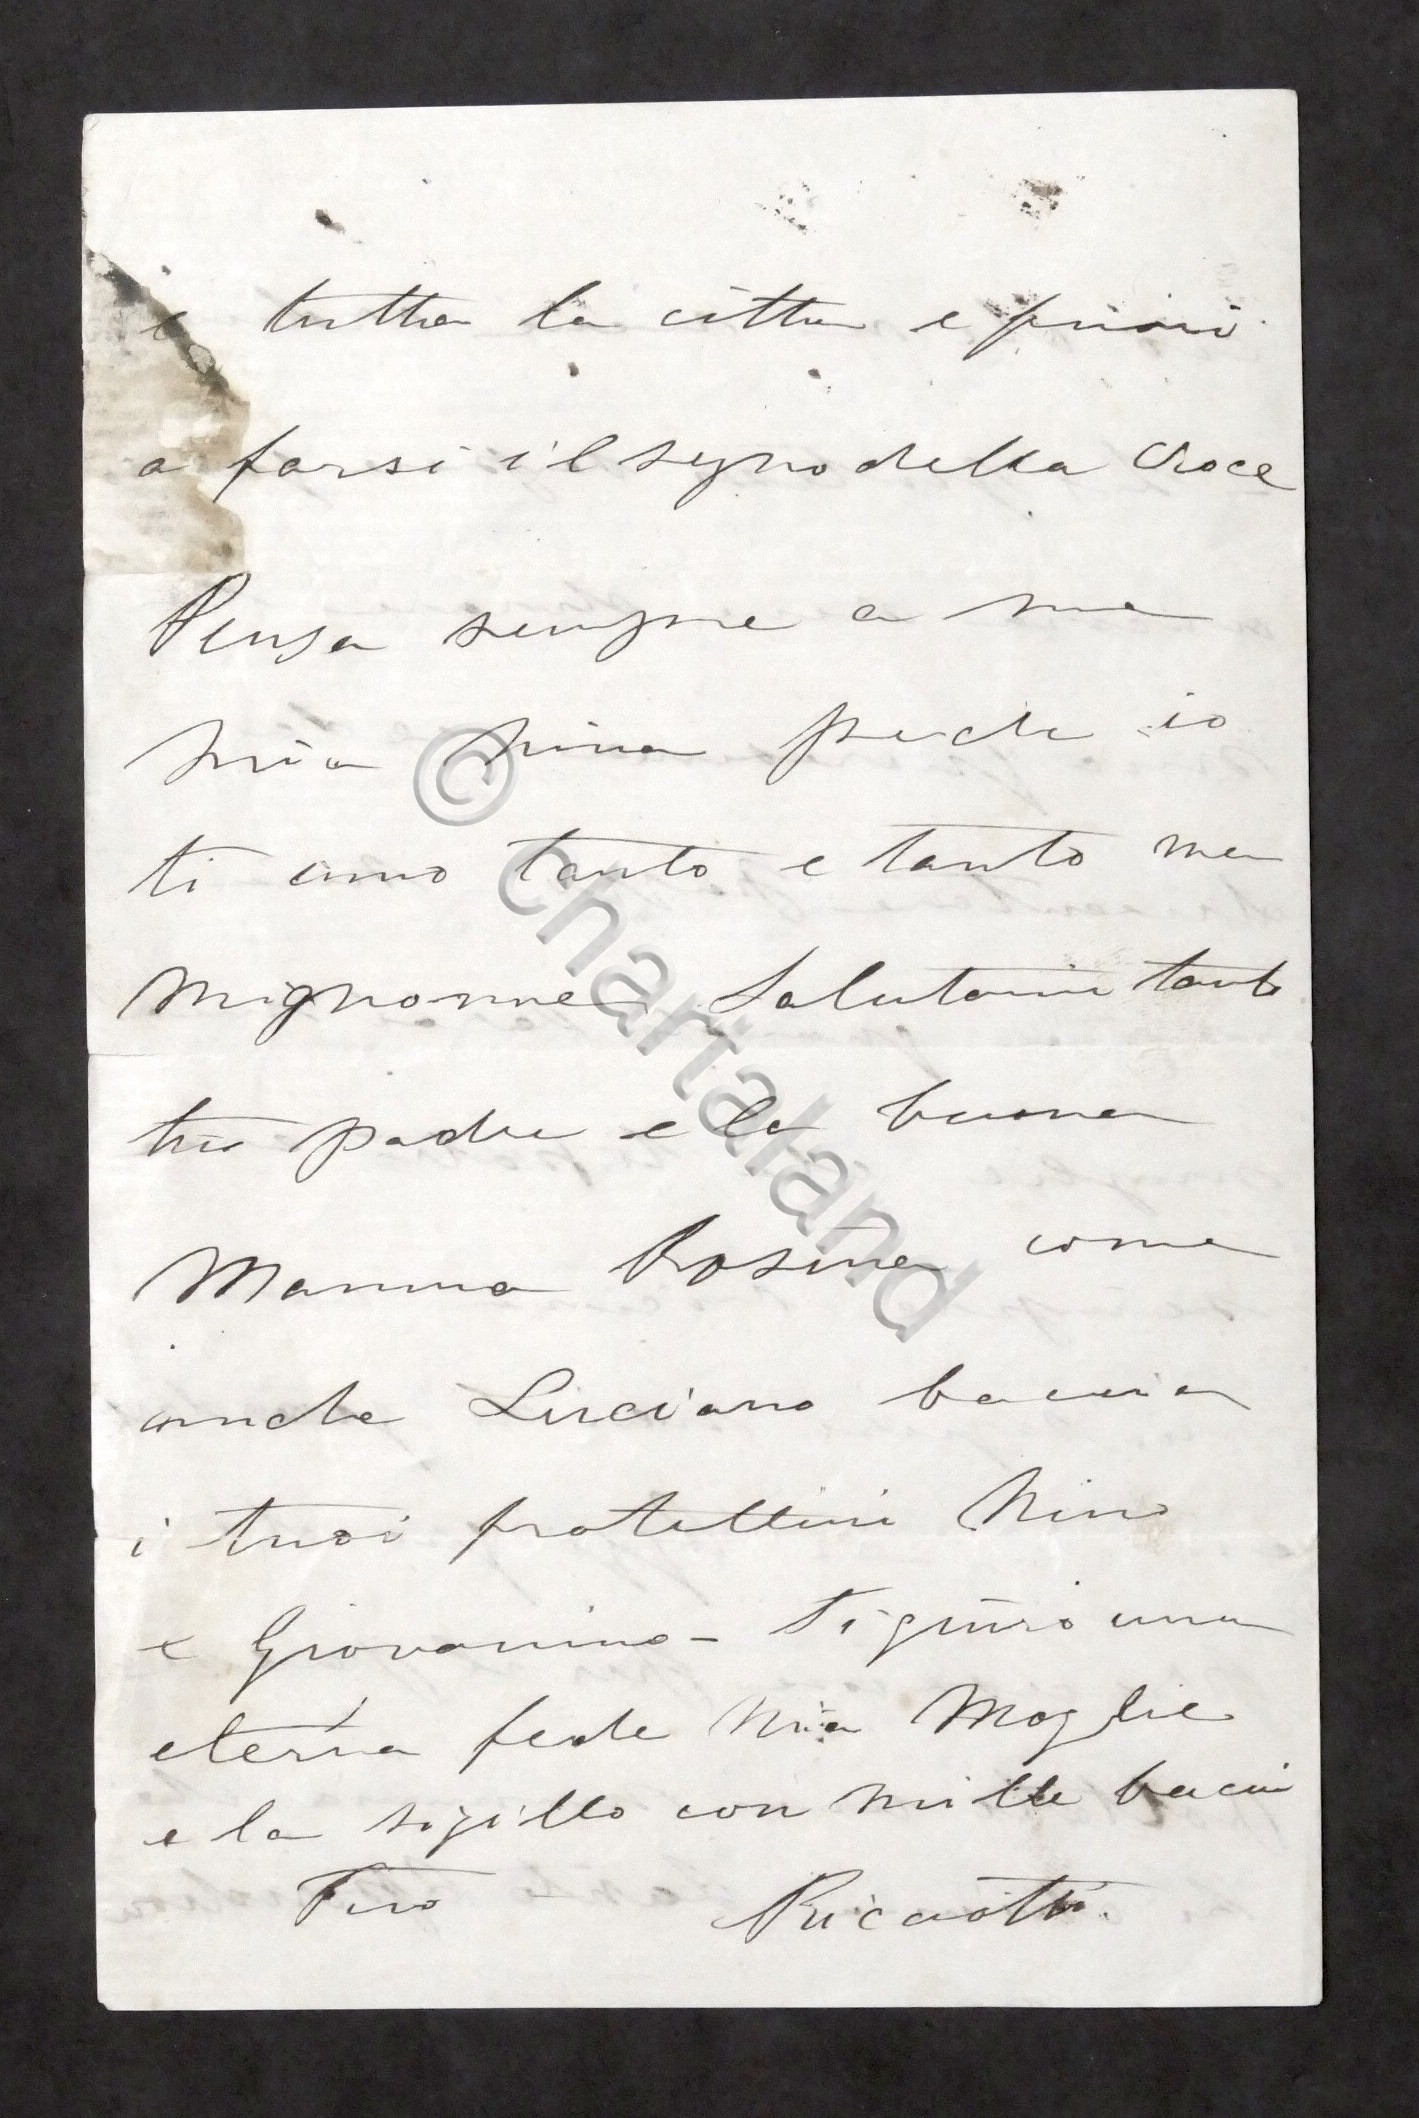 e tutta la citta e
a farsi il segno della Croce
Pensa sempre a me
mia Nina perche io
ti amo tanto e tanto mia
mignonne Salutami tanto
tuo padre e la buona
Mamma Rosina come
anche Luciano bacia
i tuoi fratellini Nino
e Giovanino - Ti giuro una
eterna fede Mia Moglie
e la sigillo con mille bacii
Tuo Ricciotti.
© chartaland